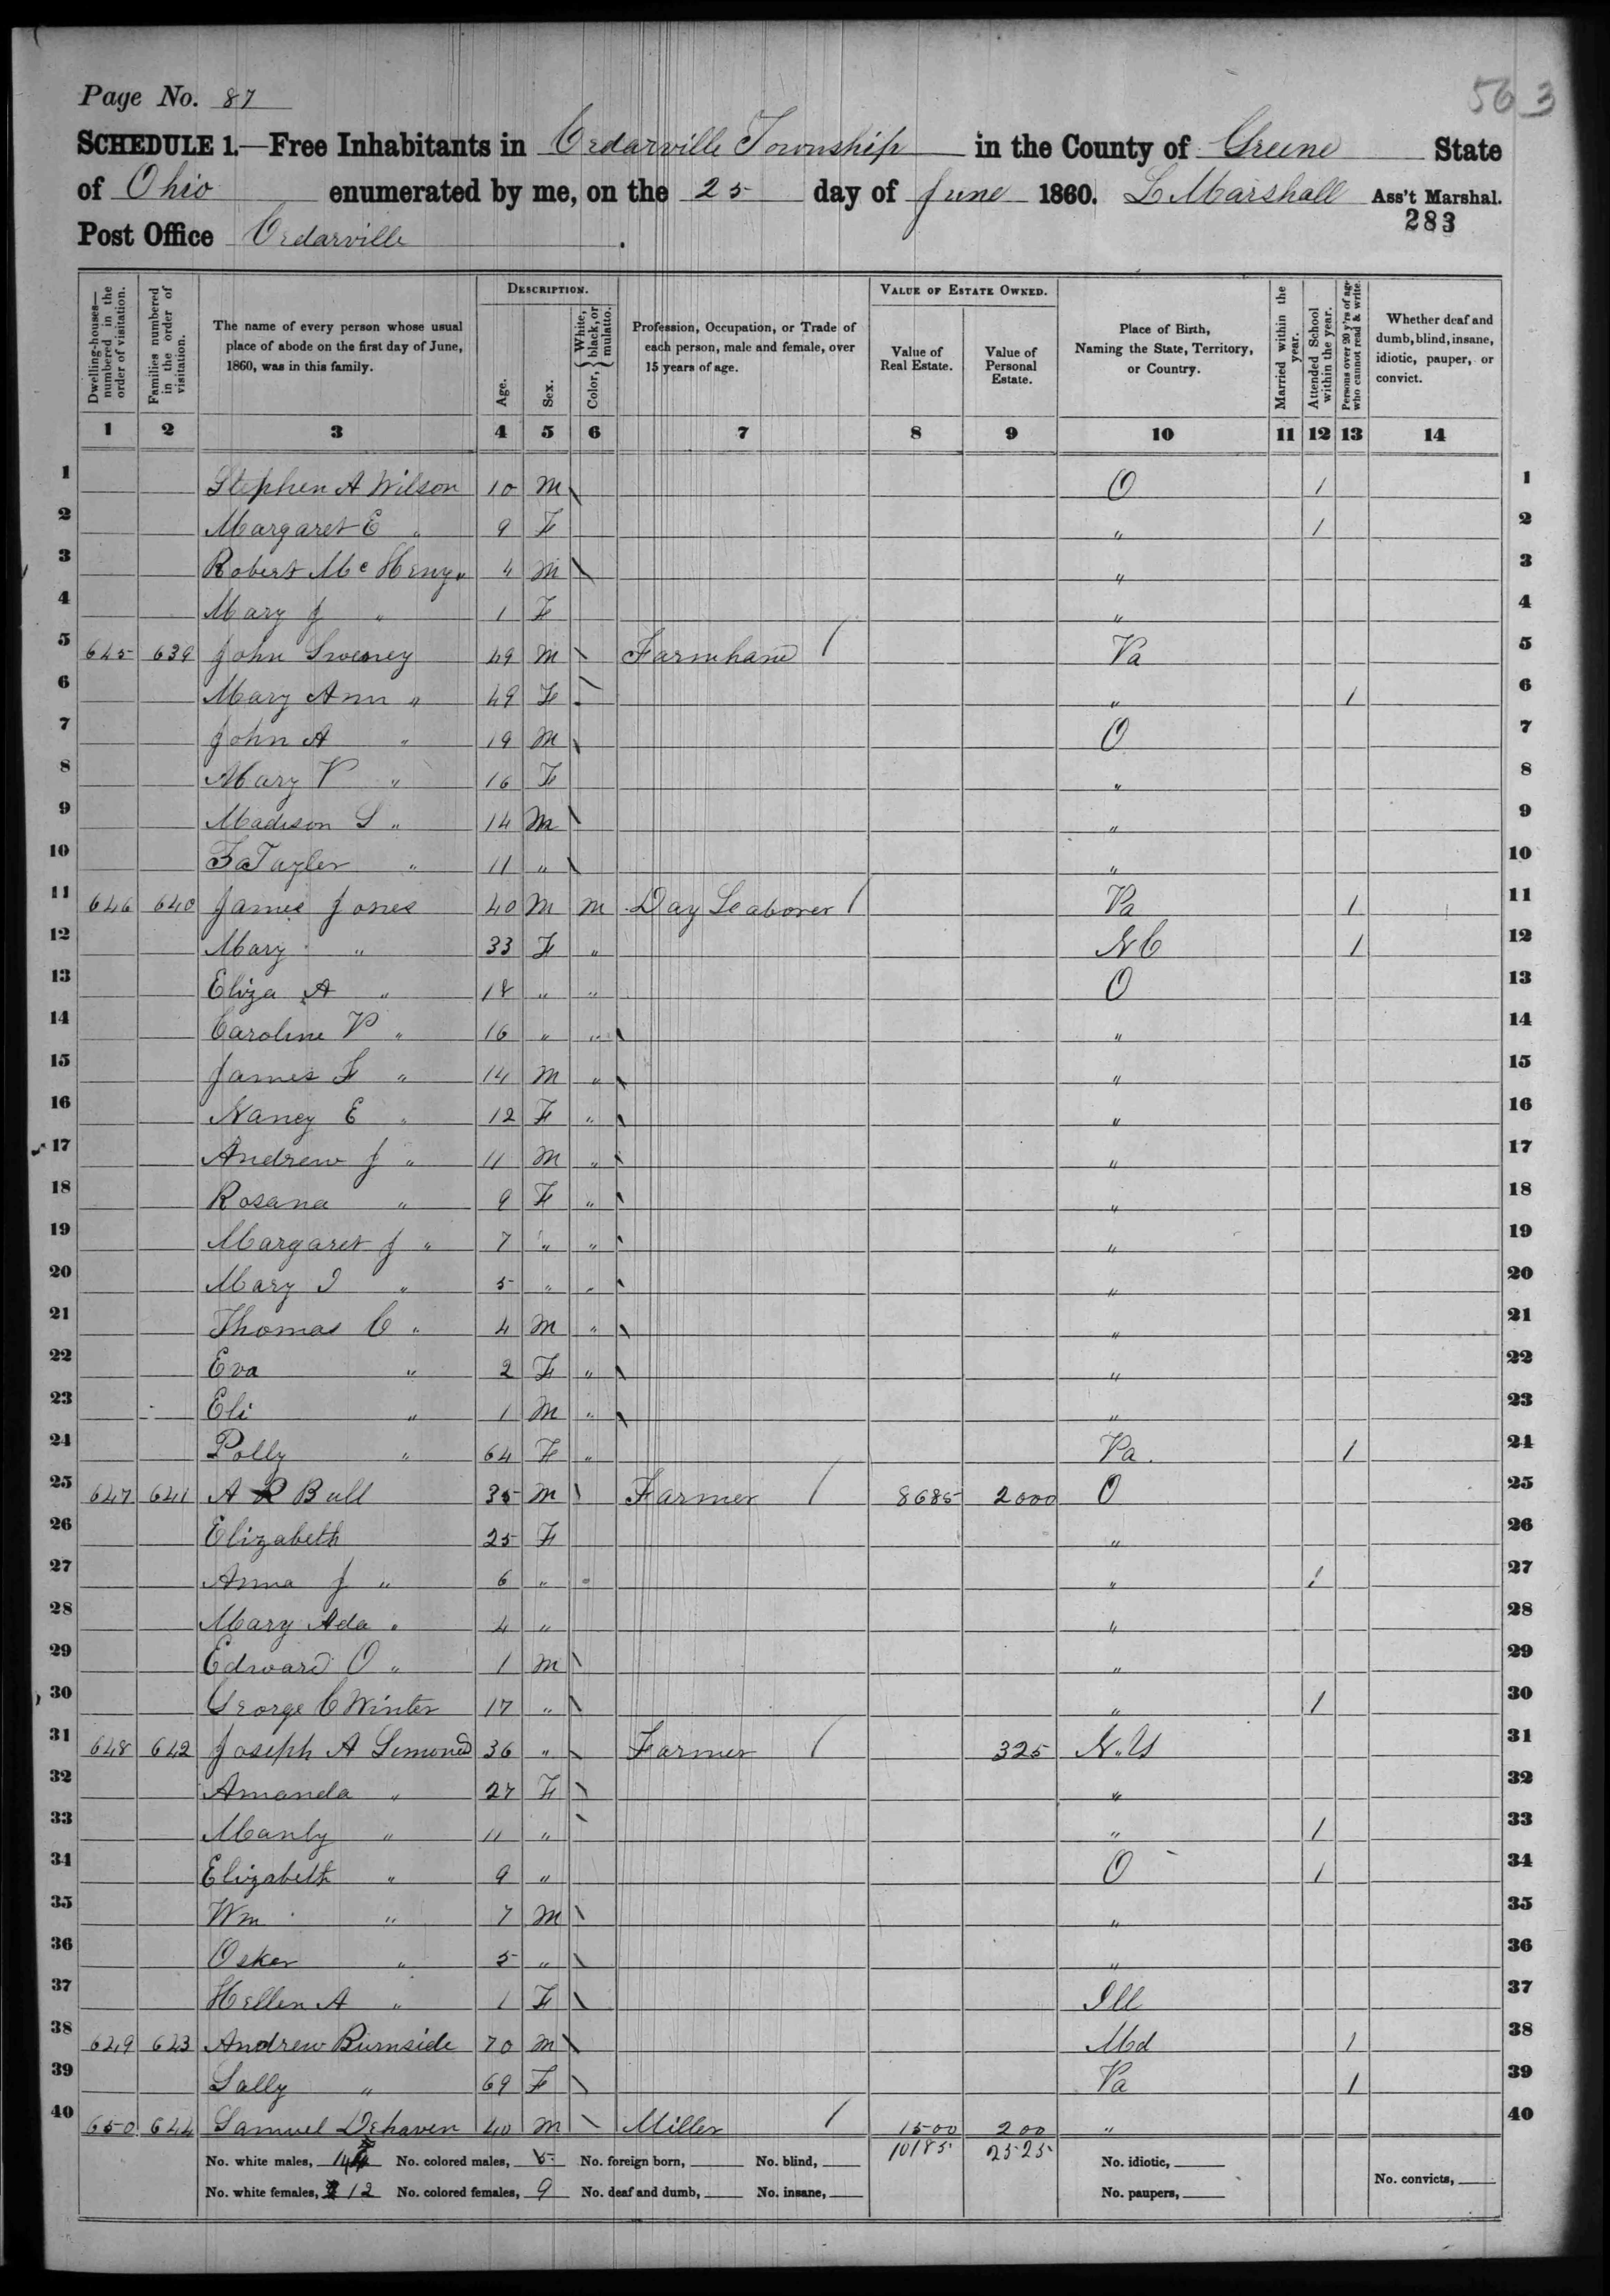 Page No. 87
563
SCHEDULE 1.—Free Inhabitants in Cedarville Township in the County of Greene State
of Ohio enumerated by me, on the 25 day of June 1860. L Marshall Ass't Marshal.
283
Post Office Cedarville.
DESCRIPTION. VALUE OF ESTATE OWNED.
Dwelling-houses—numbered in the order of visitation. Families numbered in the order of visitation. The name of every person whose usual place of abode on the first day of June, 1860, was in this family. Age. Sex. Color, { White, black, or mulatto. Profession, Occupation, or Trade of each person, male and female, over 15 years of age. Value of Real Estate. Value of Personal Estate. Place of Birth, Naming the State, Territory, or Country. Married within the year. Attended School within the year. Persons over 20 y'rs of age who cannot read & write. Whether deaf and dumb, blind, insane, idiotic, pauper, or convict.
1 2 3 4 5 6 7 8 9 10 11 12 13 14
1 Stephen A Wilson 10 M \ O / 1
2 Margaret E " 9 F " / 2
3 Robert Mc Heny " 4 M \ " 3
4 Mary J " 1 F " 4
5 645 639 John Sweney 49 M \ Farmhand / Va 5
6 Mary Ann " 49 F " / 6
7 John A " 19 M \ O 7
8 Mary V " 16 F " 8
9 Madison S " 14 M \ " 9
10 Taylor " 11 " \ " 10
11 646 640 James Jones 40 M M Day Leaborer / Va / 11
12 Mary " 33 F " N C / 12
13 Eliza A " 18 " " O 13
14 Caroline V " 16 " " \ " 14
15 James F " 14 M " \ " 15
16 Nancy E " 12 F " \ " 16
17 Andrew J " 11 M " \ " 17
18 Rosana " 9 F " \ " 18
19 Margaret J " 7 " " \ " 19
20 Mary I " 5 " " \ " 20
21 Thomas C " 4 M " \ " 21
22 Eva " 2 F " \ " 22
23 Eli " 1 M " \ " 23
24 Polly " 64 F " Va. / 24
25 647 641 A R Bull 35 M \ Farmer / 8685 2000 O 25
26 Elizabeth 25 F " 26
27 Anna J " 6 " " / 27
28 Mary Ada " 4 " " 28
29 Edward O " 1 M \ " 29
30 George C Winter 17 " \ " / 30
31 648 642 Joseph A Simoned 36 " \ Farmer / 325 N.Y 31
32 Amanda " 27 F \ " 32
33 Manly " 11 " \ " / 33
34 Elizabeth " 9 " O / 34
35 Wm " 7 M \ " 35
36 Osker " 5 " \ " 36
37 Hellen A " 1 F \ Ill 37
38 649 643 Andrew Burnside 70 M \ Md / 38
39 Sally " 69 F \ Va / 39
40 650 644 Samuel Dehaven 40 M \ Miller / 1500 200 " 40
No. white males, 14 No. colored males, 5 No. foreign born, No. blind, 10185 2525 No. idiotic, No. convicts,
No. white females, 12 No. colored females, 9 No. deaf and dumb, No. insane, No. paupers,